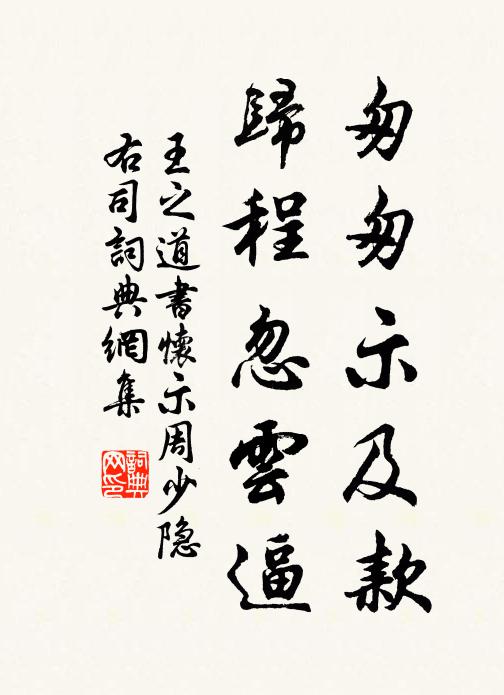 匆匆示及款
歸程忽雲逼
王之道書懷示周少隐
右司詞典網集
詞典網印